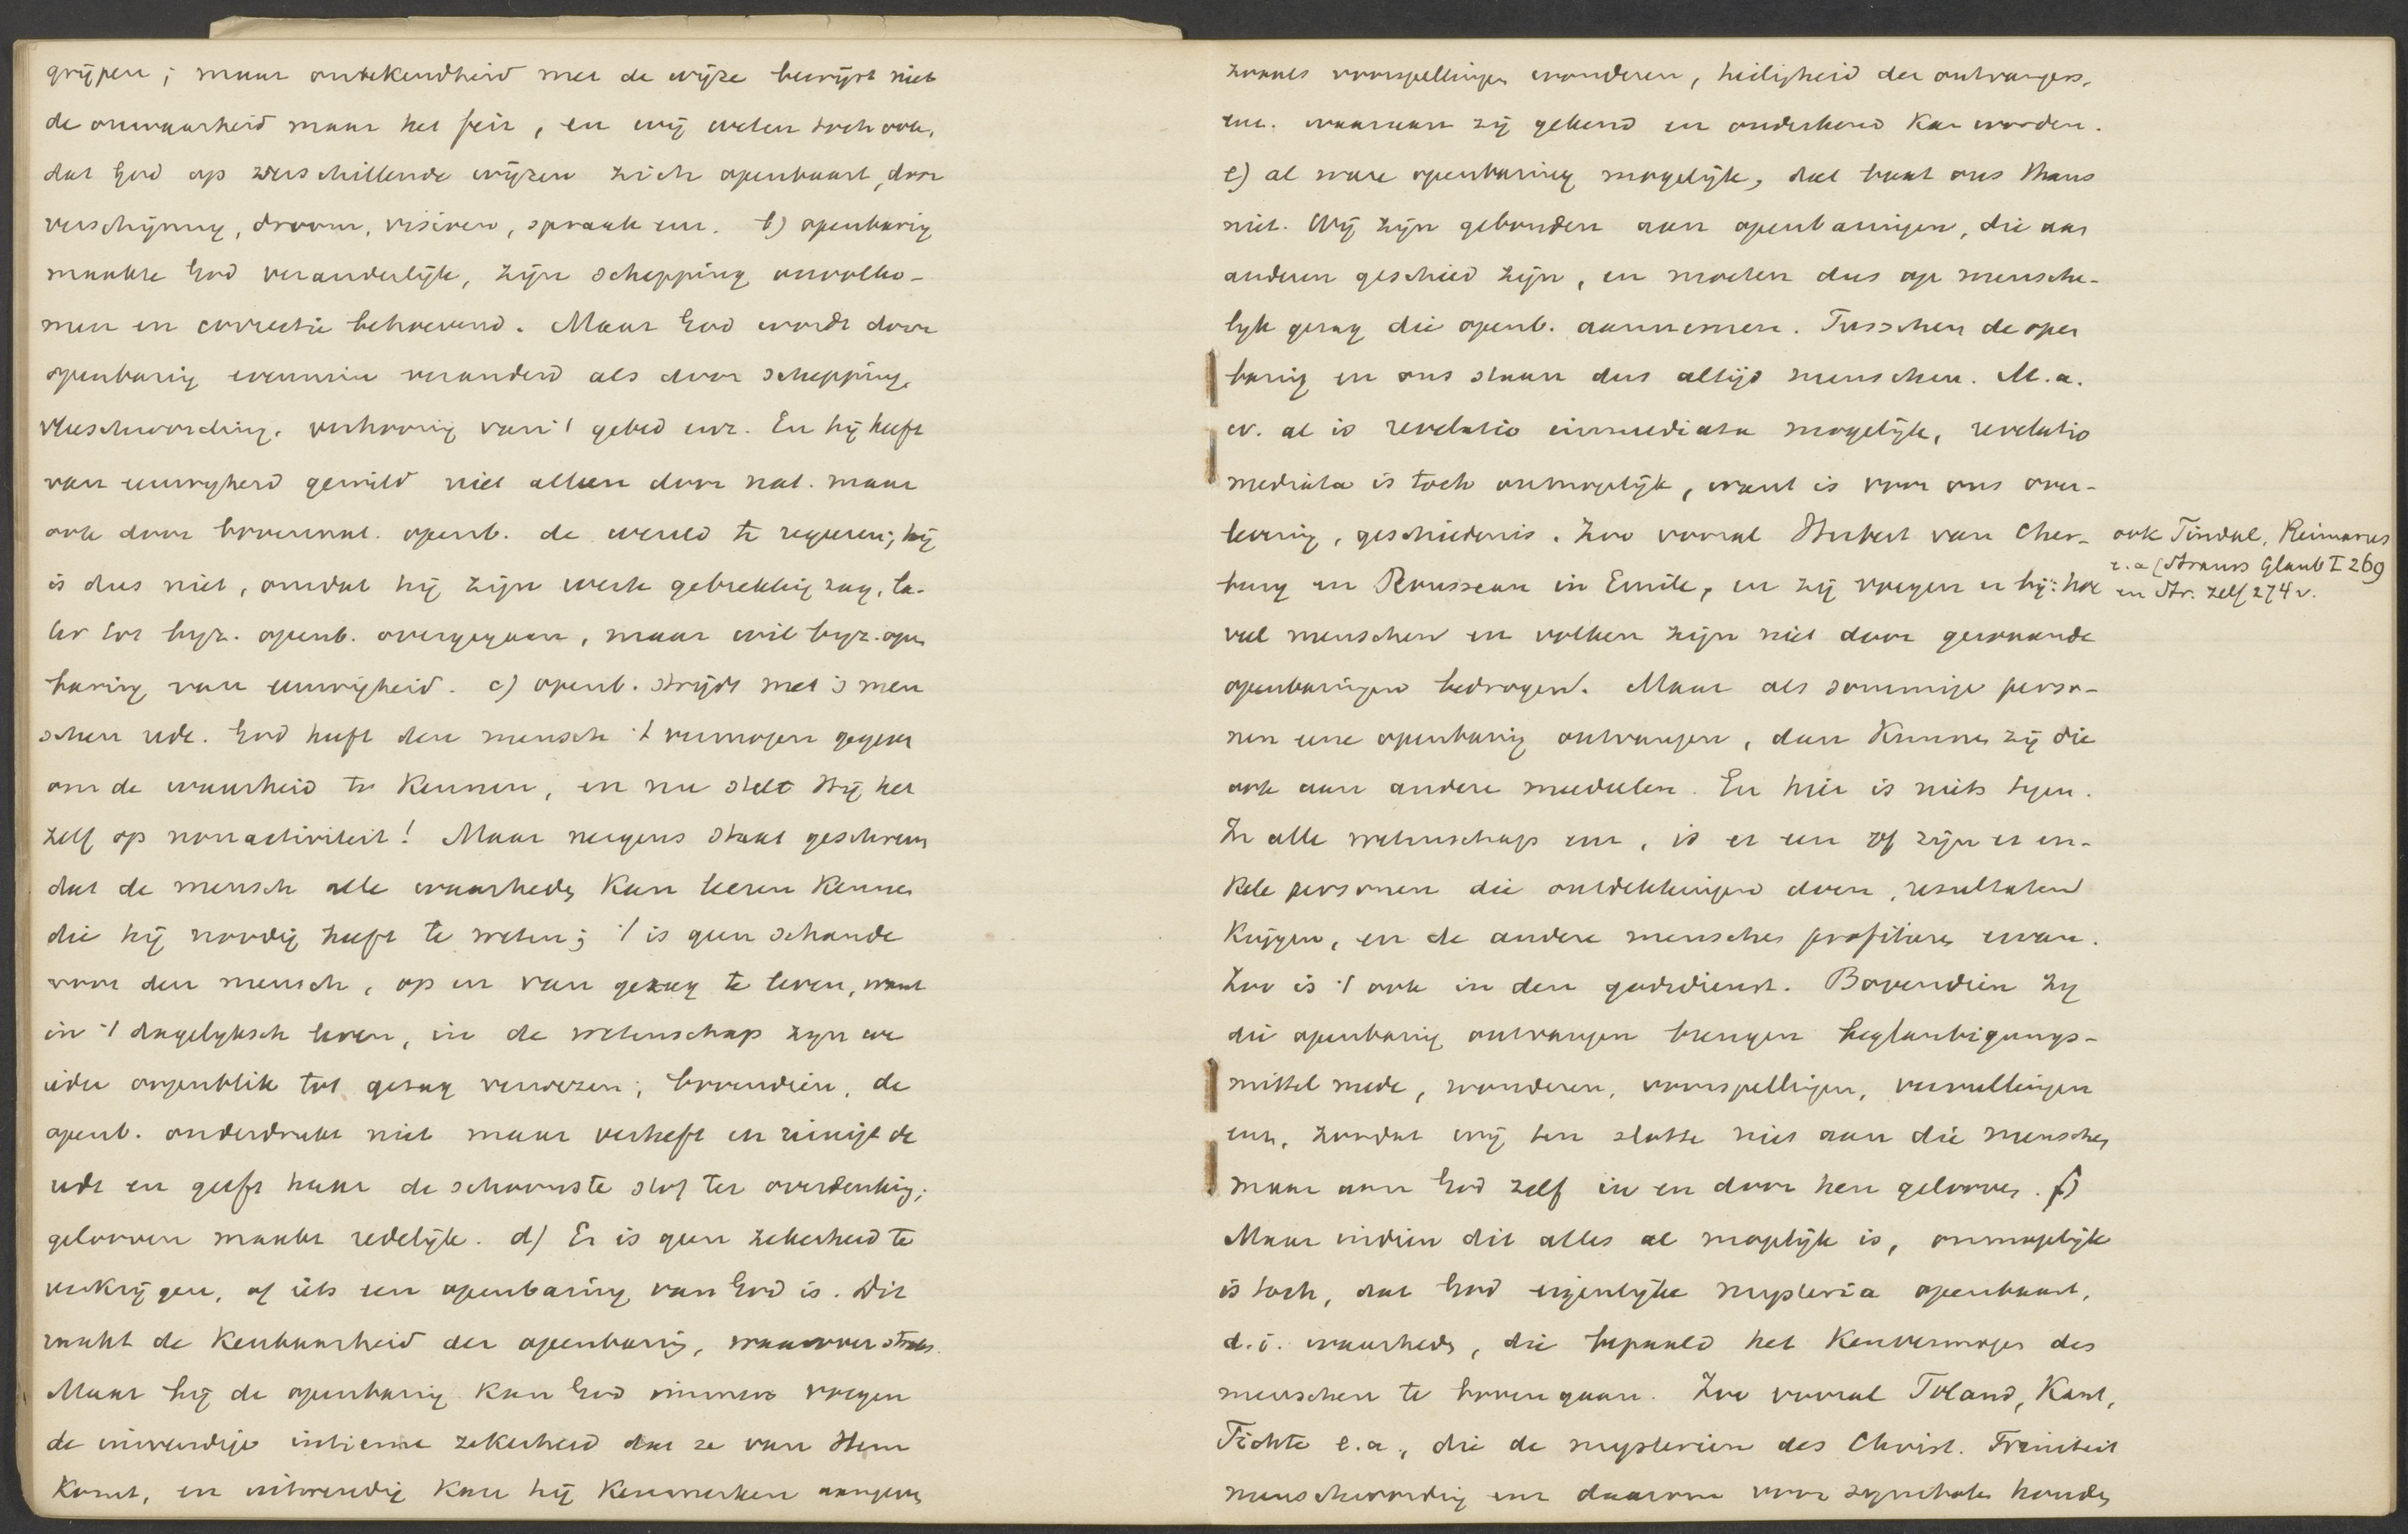 grijpen; maar onbekendheid met de wijze bewijst niet
de onwaarheid maar het feit, en wij weten toch ook,
dat God op verschillende wijzen zich openbaart, door
verschijning, droom, visioen, spraak enz. b) openbaring
maakte God veranderlijk, zijn schepping onvolko-
men en correctie behoevend. Maar God wordt door
openbaring evenmin veranderd als door schepping,
vleeschwording, verhooring van 't gebed enz. En hij heeft
van eeuwigheid gewild niet alleen door nat. maar
ook door bovennat. openb. de wereld te regeren; hij
is dus niet, omdat hij zijn werk gebrekkig zag, la-
ter tot byz. openb. overgegaan, maar wil byz. open
baring van eeuwigheid. c) openb. strijdt met 's men
schen rede. God heeft den mensch 't vermogen gegeven
om de waarheid te kennen, en nu stelt Hij het
zelf op nonactiviteit! Maar nergens staat geschreven
dat de mensch alle waarheden kan leeren kennen
die hij noodig heeft te weten; 't is geen schande
voor den mensch, op en van gezag te leven, want
in 't dagelyksch leven, in de wetenschap zyn we
ieder oogenblik tot gezag verwezen; bovendien, de
openb. onderdrukt niet maar verheft en reinigt de
rede en geeft haar de schoonste stof ter overdenking;
gelooven maakt redelijk. d) Er is geen zekerheid te
verkrijgen, of iets een openbaring van God is. Dit
raakt de kenbaarheid der openbaring, waarover straks.
Maar bij de openbaring kan God immers voegen
de inwendige intieme zekerheid dat ze van Hem
komt, en uitwendig kan hij kenmerken aangeven
zooals voorspellingen wonderen, heiligheid der ontvangers,
enz. waaraan zij gekend en onderkend kan worden.
e) al ware openbaring mogelijk, dat baat ons thans
niet. Wij zijn gebonden aan openbaringen, die aan
anderen geschied zijn, en moeten dus op mensche-
lyk gezag die openb. aannemen. Tusschen de open
baring en ons staan dus altijd menschen. M.a.
w. al is revelatio immediata mogelijk, revelatio
mediata is toch onmogelijk, want is voor ons over-
levering, geschiedenis. Zoo vooral Herbert van Cher-
bury en Rousseau in Emile, en zij voegen er bij: hoe
ook Tindal, Reimarus
e.a (Strauss Glaub I 269
en Str. zelf 274 v.
veel menschen en volken zijn niet door gewaande
openbaringen bedrogen. Maar als sommige perso-
nen eene openbaring ontvangen, dan kunnen zij die
ook aan andere meedeelen. En hier is niets tegen.
In alle wetenschap enz, is er een of zijn er en-
kele personen die ontdekkingen doen, resultaten
krijgen, en de andere menschen profiteren ervan.
Zoo is 't ook in den godsdienst. Bovendien zy
die openbaring ontvangen brengen beglaubigungs-
mittel mede, wonderen, voorspellingen, vervullingen
enz, zoodat wij ten slotte niet aan die menschen
maar aan God zelf in en door hen gelooven. f)
Maar indien dit alles al mogelijk is, onmogelijk
is toch, dat God eigenlijke mysteria openbaart,
d.i. waarheden, die bepaald het kenvermogen des
menschen te boven gaan. Zoo vooral Toland, Kant,
Fichte e.a., die de mysterien des Christ. Triniteit
menschwording enz daarom voor symbolen houden